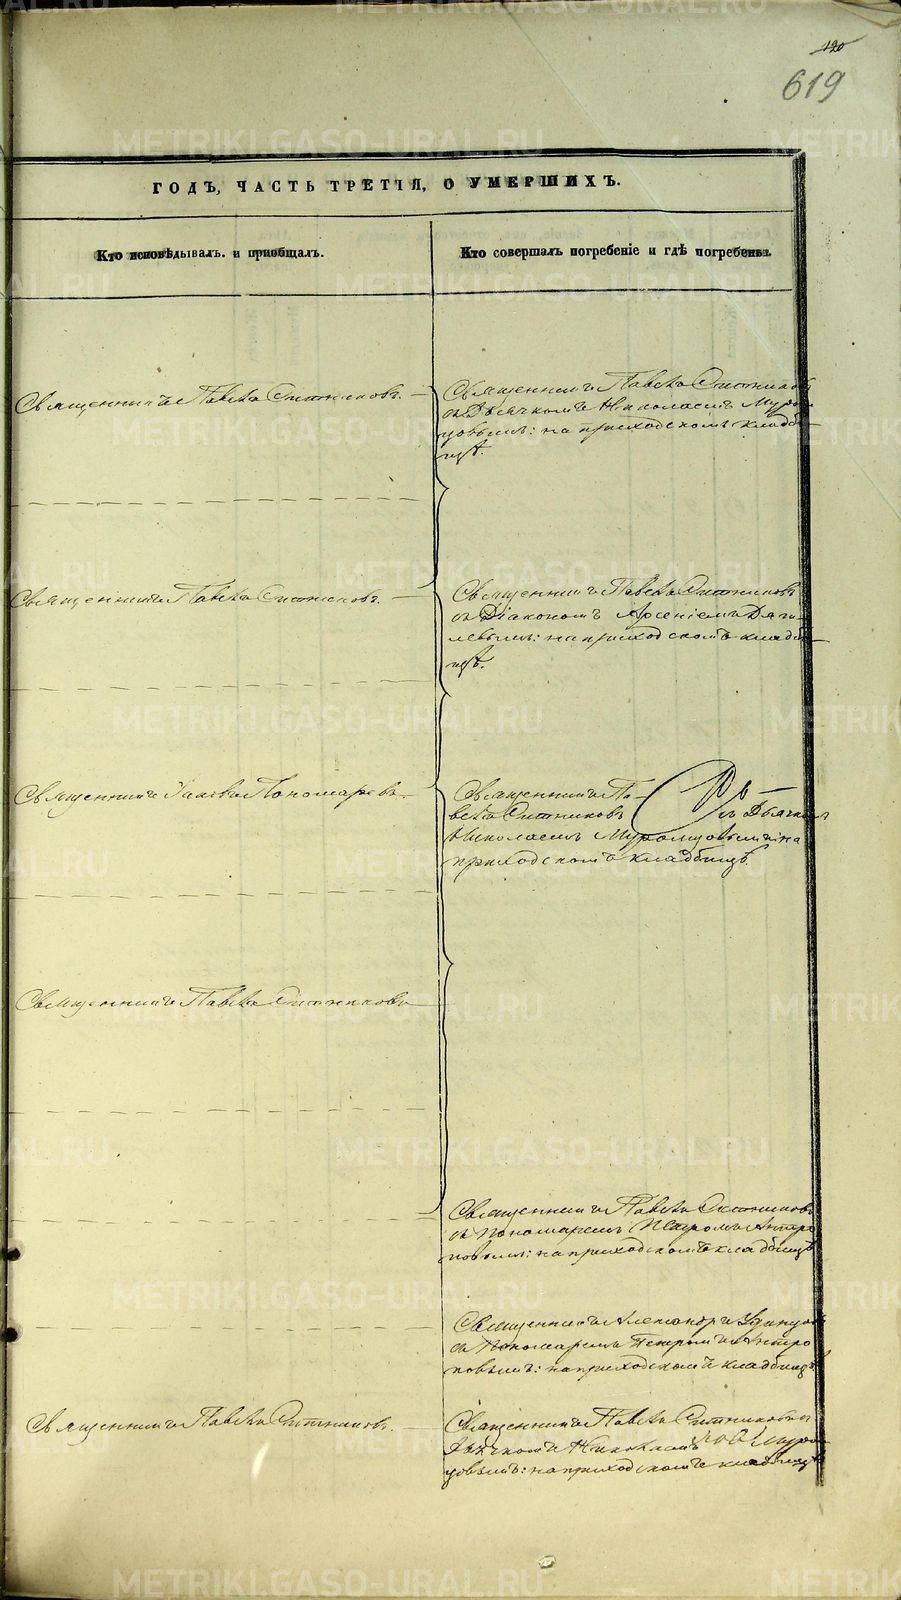 120
619
ГОДЪ, ЧАСТЬ ТРЕТІЯ, О УМЕРШИХЪ.
Кто исповѣдывалъ и пріобщалъ.
Кто совершалъ погребеніе и гдѣ погребены.
Священникъ Павелъ Ситниковъ. —
Священникъ Павелъ Ситниковъ
съ Дьячкомъ Николаемъ Муром
цовымъ: на приходскомъ кладби-
щѣ.
Священникъ Павелъ Ситниковъ. —
Священникъ Павелъ Ситниковъ
съ Діакономъ Арсеніемъ Дяги
левымъ: на приходскомъ кладби-
щѣ.
Священникъ Іаковъ Пономаревъ. —
Священникъ Па-
велъ Ситниковъ съ Дьячкомъ
Николаемъ Муромцовымъ: на
приходскомъ кладбищѣ.
Священникъ Павелъ Ситниковъ —
Священникъ Павелъ Ситниковъ
съ Пономаремъ Петромъ Антро
повымъ: на приходскомъ кладбищѣ
Священникъ Александръ
съ Пономаремъ Петромъ Антро
повымъ: на приходскомъ кладбищѣ
Священникъ Павелъ Ситниковъ. —
Священникъ Павелъ Ситниковъ съ
Дьячкомъ Николаемъ Муром
цовымъ: на приходскомъ кладбищѣ
METRIKI.GASO-URAL.RU